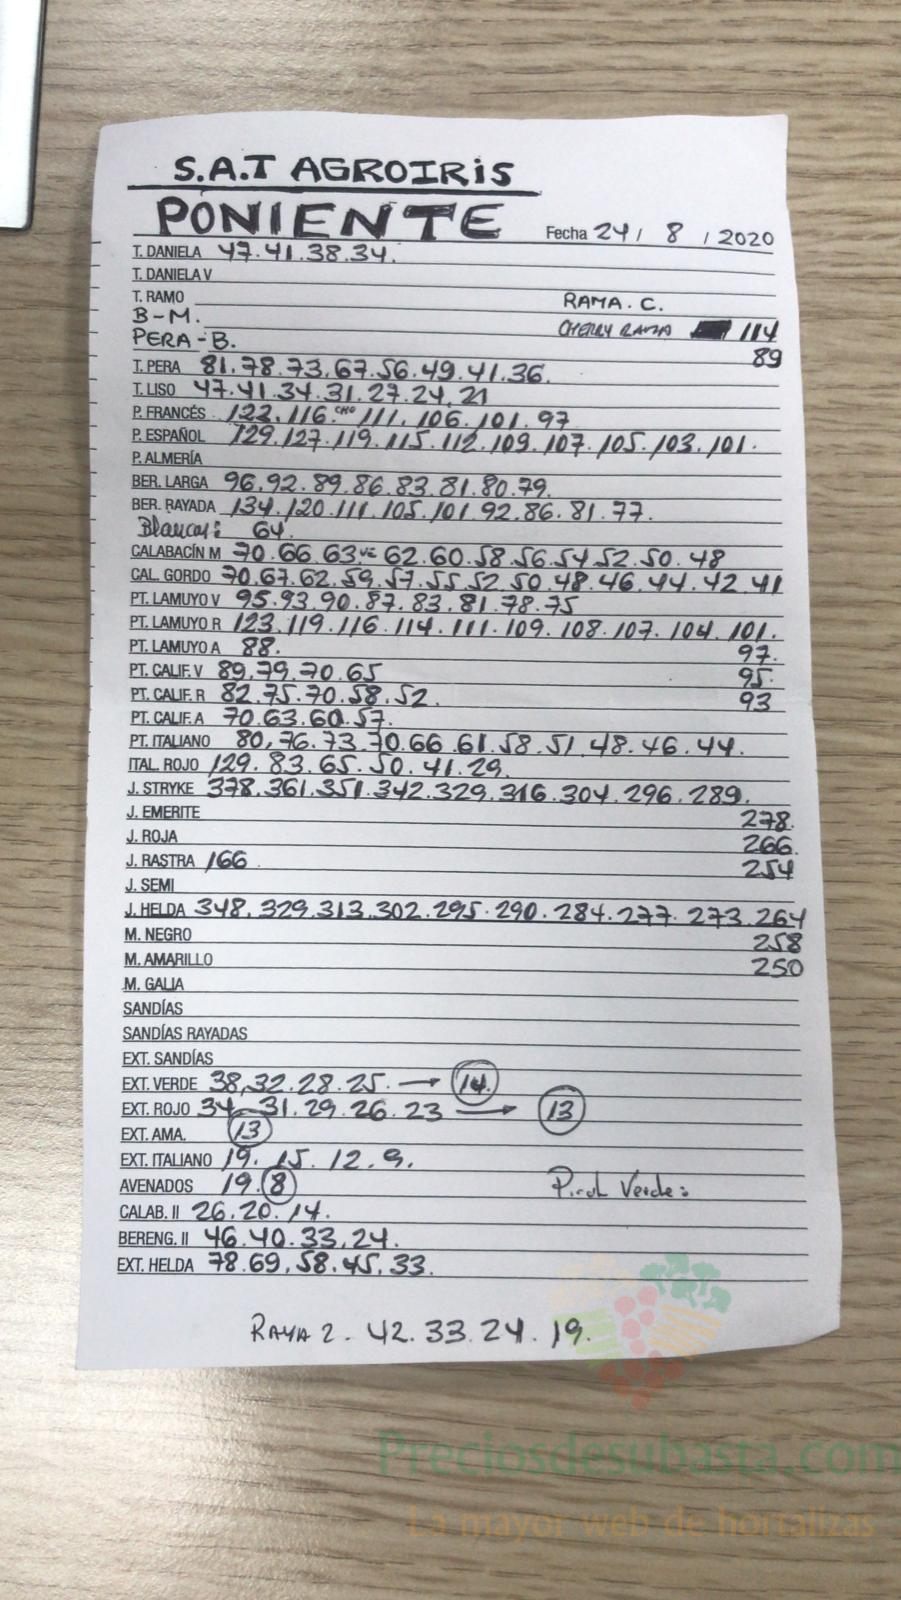 S.A.T AGROIRIS
PONIENTE Fecha 24 / 8 / 2020
T. DANELA 47.41.38.34.
T. DANIELA V
T. RAMO RAMA. C.
B-M. CHERRY RAMA 114
PERA-B. 89
T. PERA 81.78.73.67.56.49.41.36.
T. LISO 47.41.34.31.27.24.21
P. FRANCÉS 122.116.CHO 111.106.101.97
P. ESPAÑOL 129.127.119.115.112.109.107.105.103.101.
P. ALMERÍA
BER. LARGA 96.92.89.86.83.81.80.79.
BER. RAYADA 134.120.111.105.101.92.86.81.77.
Blancas: 64.
CALABACÍN M 70.66.63 VE 62.60.58.56.54.52.50.48
CAL. GORDO 70.67.62.59.57.55.52.50.48.46.44.42.41
PT. LAMUYO V 95.93.90.87.83.81.78.75
PT. LAMUYO R 123.119.116.114.111.109.108.107.104.101.
PT. LAMUYO A 88. 97.
PT. CALIF. V 89.79.70.65 95.
PT. CALIF. R 82.75.70.58.52. 93
PT. CALIF. A 70.63.60.57.
PT. ITALIANO 80,76.73.70.66.61.58.51.48.46.44.
ITAL. ROJO 129.83.65.50.41.29.
J. STRYKE 378.361.351.342.329.316.304.296.289.
J. EMERITE 278.
J. ROJA 266.
J. RASTRA 166 254
J. SEMI
J. HELDA 348.329.313.302.295.290.284.277.273.264
M. NEGRO 258
M. AMARILLO 250
M. GALIA
SANDÍAS
SANDÍAS RAYADAS
EXT. SANDÍAS
EXT. VERDE 38,32.28.25. → 14.
EXT. ROJO 34-31.29.26.23 → 13
EXT. AMA. 13
EXT. ITALIANO 19.15.12.9.
AVENADOS 19.8 Picol Verde:
CALAB. II 26.20.14.
BERENG. II 46.40.33.24.
EXT. HELDA 78.69.58.45.33.
RAYA 2. 42.33.24.19.
Preciosdesubasta.com
La mayor web de hortalizas